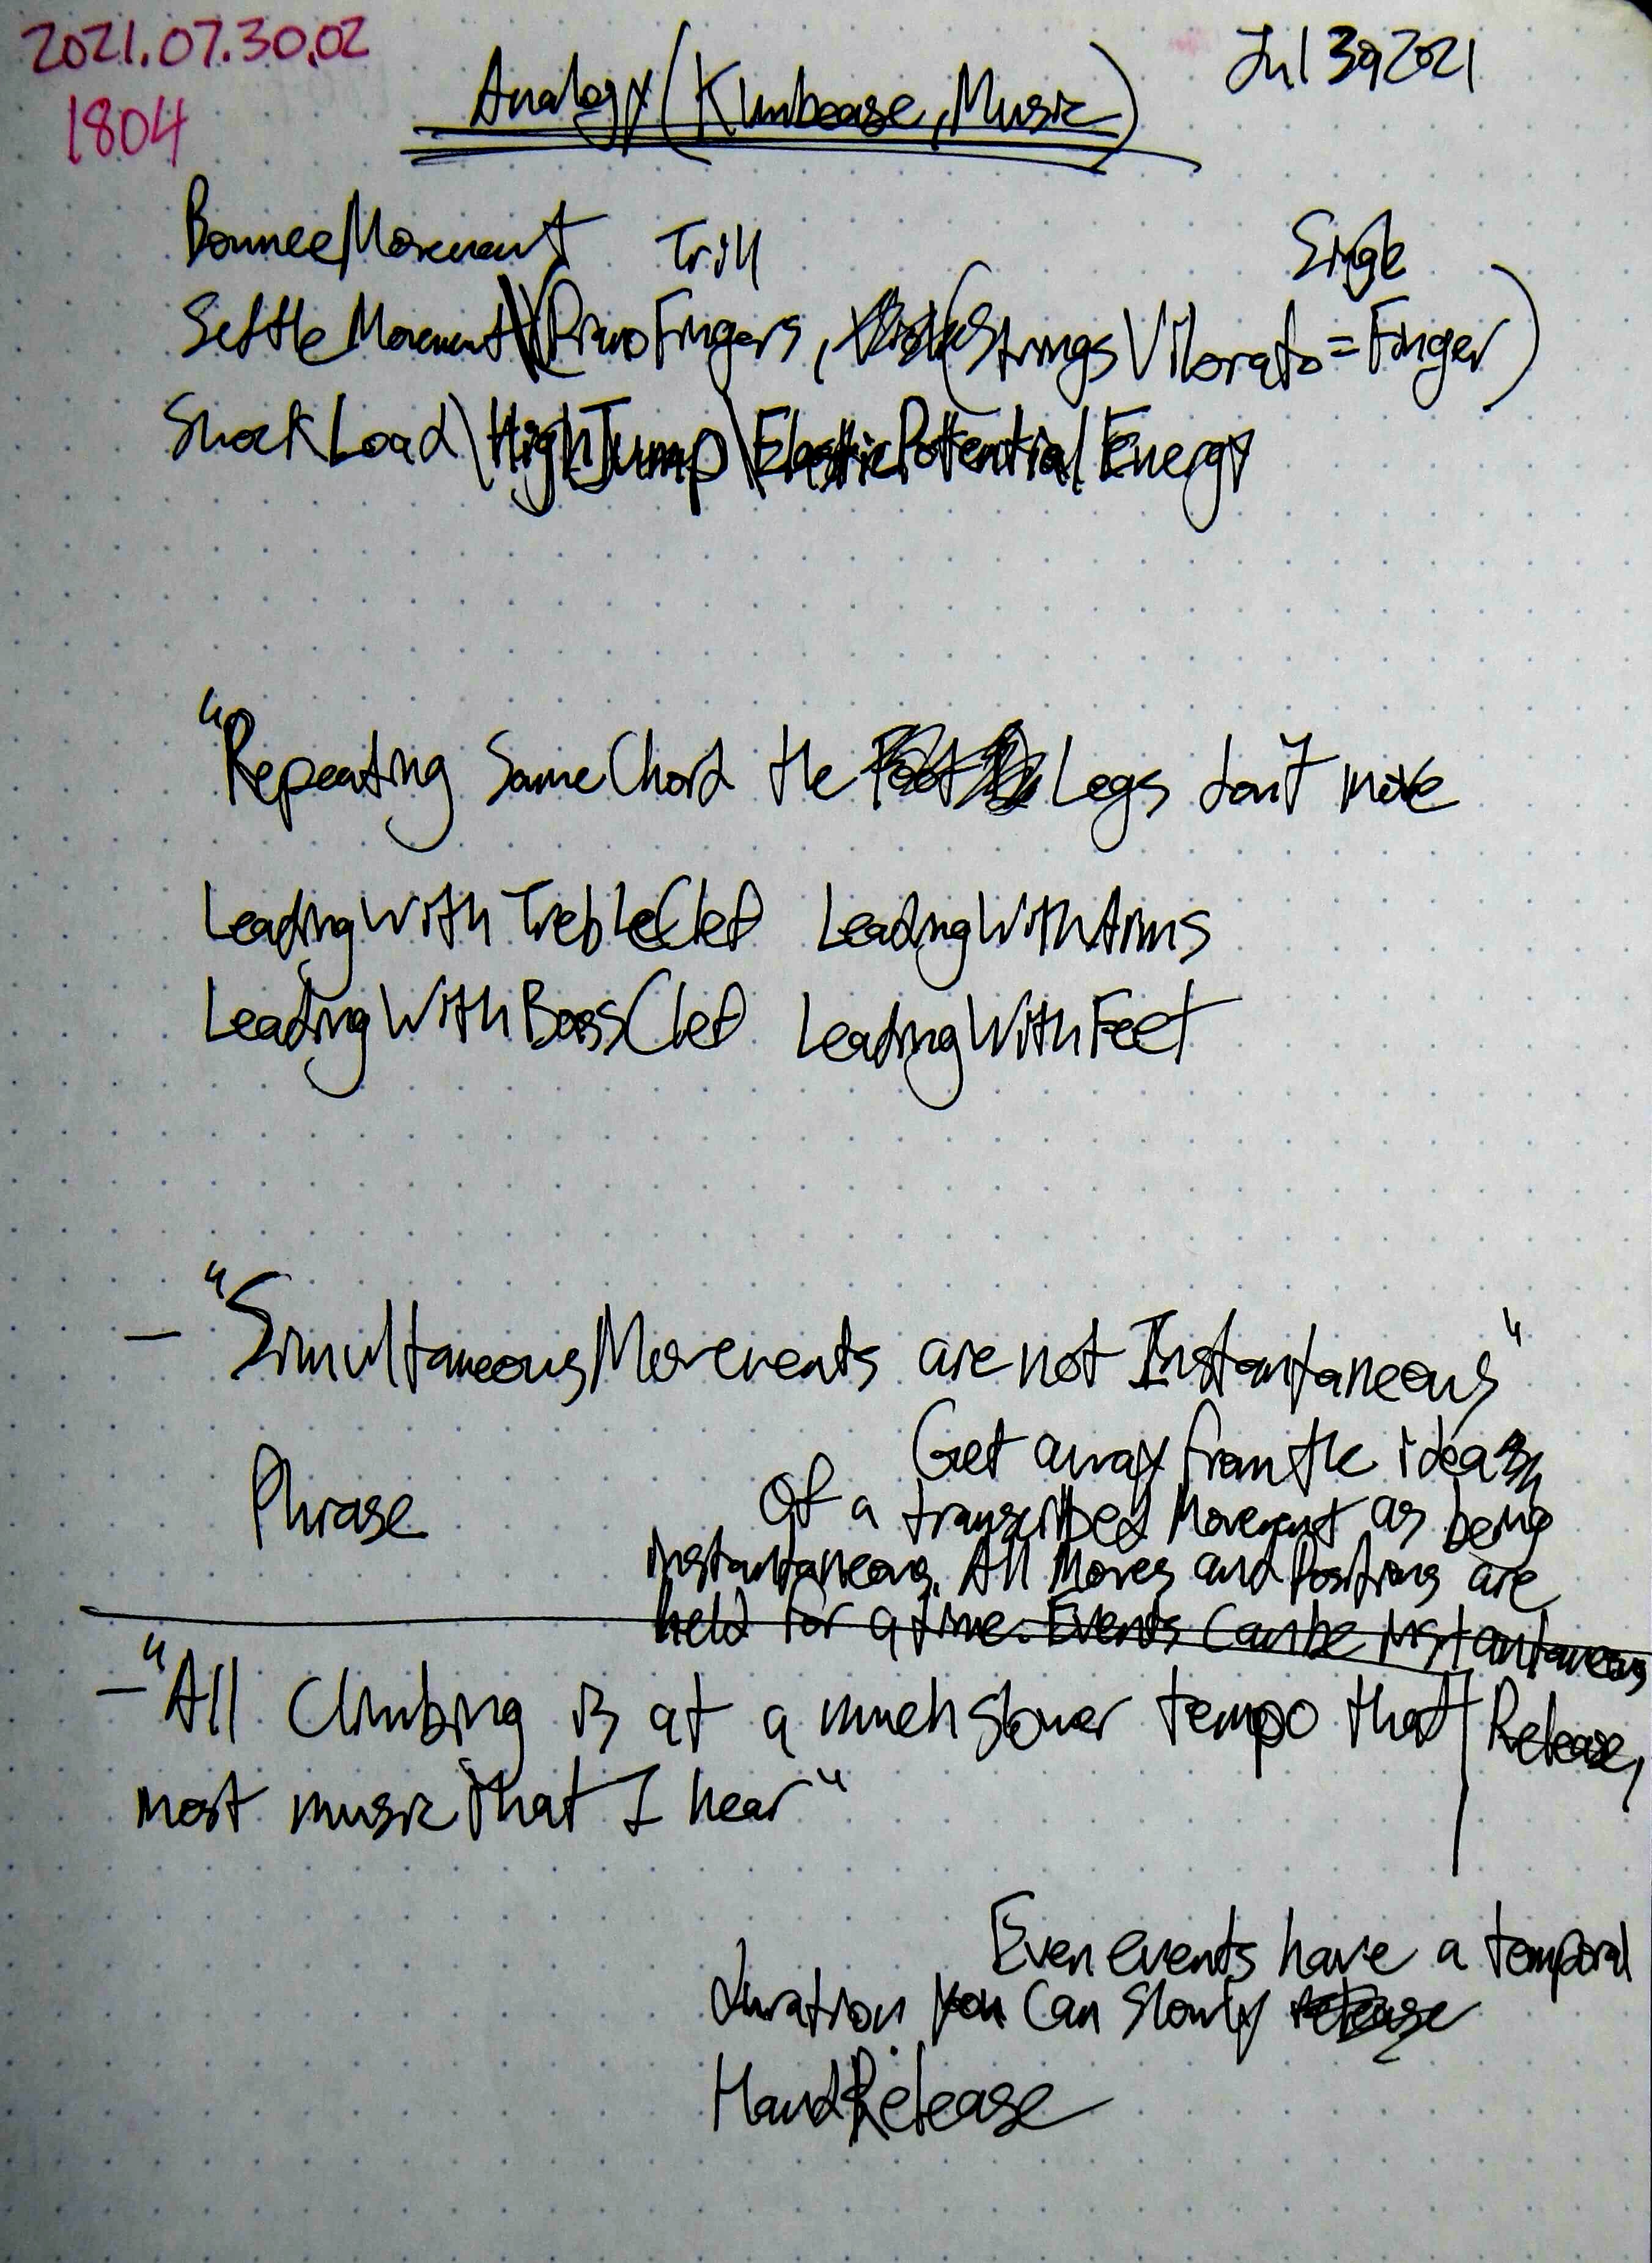 2021.07.30.02
1804
Jul 30, 2021
Analogy (Klimbease, Music)
BounceMovement Trill
Single
SettleMovement\(PianoFingers, (StringsVibrato=Finger)
ShockLoad\HighJump\ElasticPotentialEnergy
"Repeating SameChord the Legs don't move
LeadingWithTrebleClef LeadingWithArms
LeadingWithBassClef LeadingWithFeet
— "SimultaneousMovements are not Instantaneous"
Phrase
Get away from the idea
of a transcribed Movement as being
instantaneous. All Moves and Positions are
held for a time. Events Can be instantaneous
— "All Climbing is at a much slower tempo that
Release,
most music that I hear"
Even events have a temporal
duration you Can slowly release
HandRelease